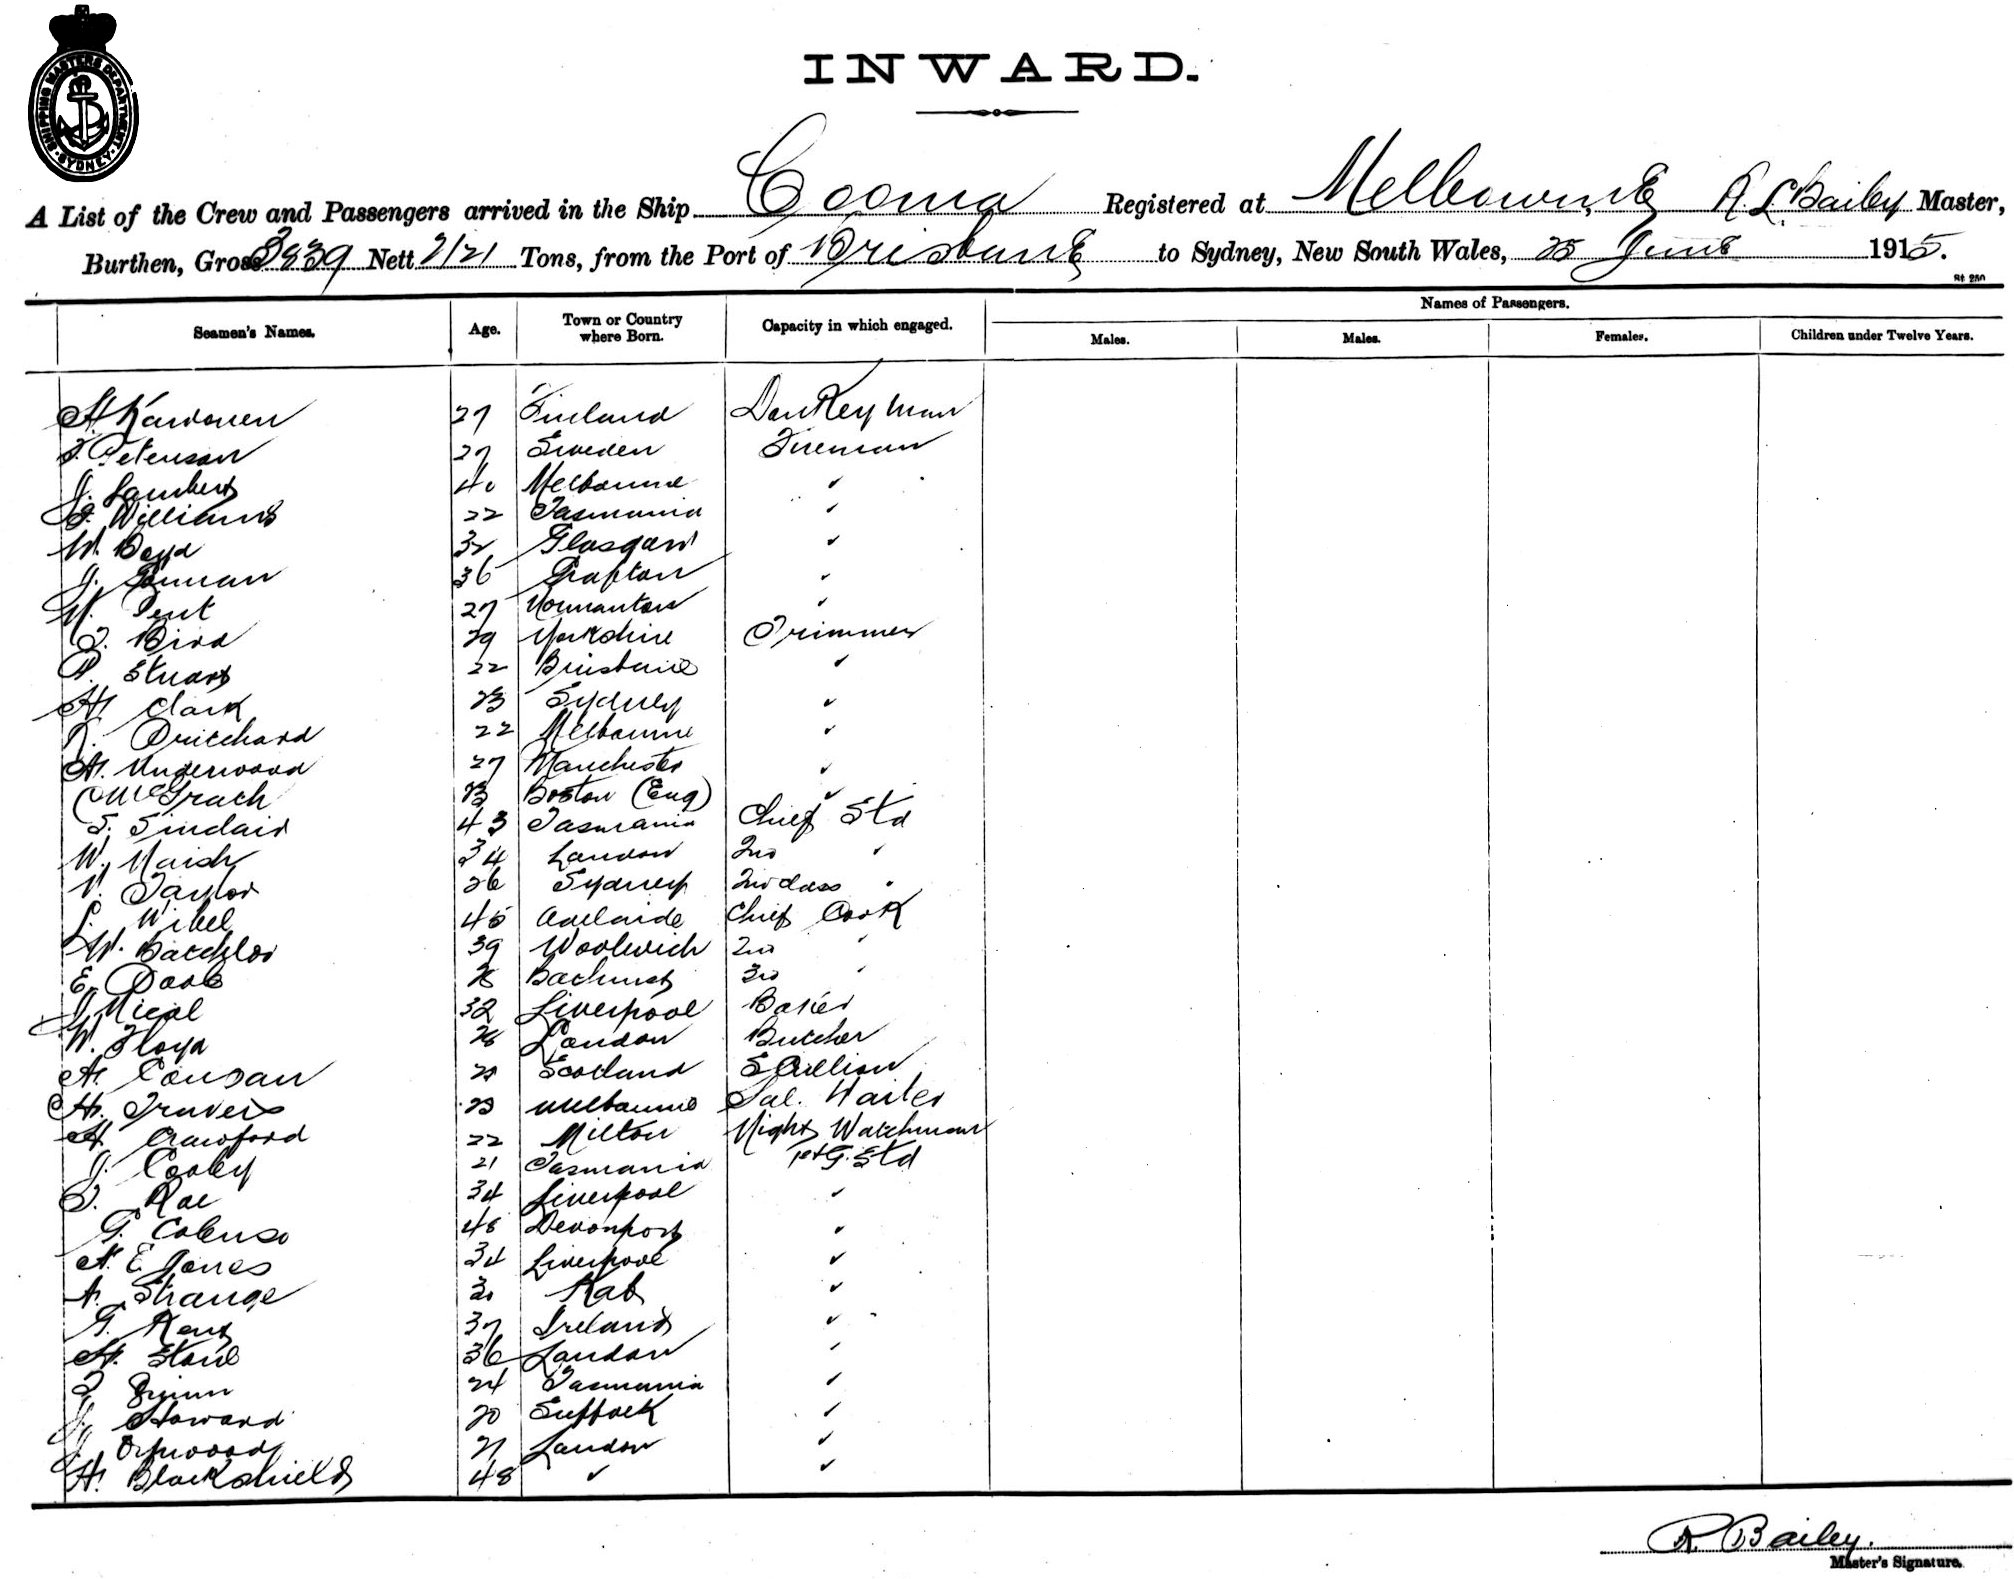 SHIPPING MASTERS DEPARTMENT
SYDNEY
INWARD.
A List of the Crew and Passengers arrived in the Ship Cooma Registered at Melbourne R. L. Bailey Master,
Burthen, Gross 3839 Nett 2121 Tons, from the Port of Brisbane to Sydney, New South Wales, 25 June 1915.
St 250
Names of Passengers.
Seamen's Names. Age. Town or Country where Born. Capacity in which engaged. Males. Males. Females. Children under Twelve Years.
27 Finland Donkeyman
Peterson 27 Sweden Fireman
J. Lambert 40 Melbourne ✓
Williams 22 Tasmania ✓
W. Boyd 32 Glasgow ✓
J. 36 Grafton ✓
W. Pent 27 Normanton ✓
T. Bird 29 Yorkshire Trimmer
Stuart 22 Brisbane ✓
H. Clark 23 Sydney ✓
R. Pritchard 22 Melbourne ✓
A. Underwood 27 Manchester ✓
C McGrath 23 Boston (Eng) ✓
S. Sinclair 43 Tasmania Chief Std
W. Naish 34 London 2nd "
V. Taylor 26 Sydney 2nd class "
L. Wibel 45 Adelaide Chief Cook
W. Batchlor 39 Woolwich 2nd "
E. Poole Bathurst 3rd "
J Nicol 32 Liverpool Baker
W. Floyd London Butcher
A. Scotland Scullion
H. Travers 23 Melbourne Sal. Waiter
A. Crawford 22 Milton Night Watchman
J. Cooley 21 Tasmania 1st G. Std
T. Rae 34 Liverpool ✓
G. Colenso 48 Devonport ✓
A. E. Jones 34 Liverpool ✓
A. Strange 30 ✓
G. Kent 37 Ireland ✓
H. Stone 36 London ✓
Quinn 24 Tasmania ✓
J. Howard 20 Suffolk ✓
J. Orpwood 21 London ✓
H. Blackshield 48 ✓ ✓
R. Bailey.
Master's Signature.